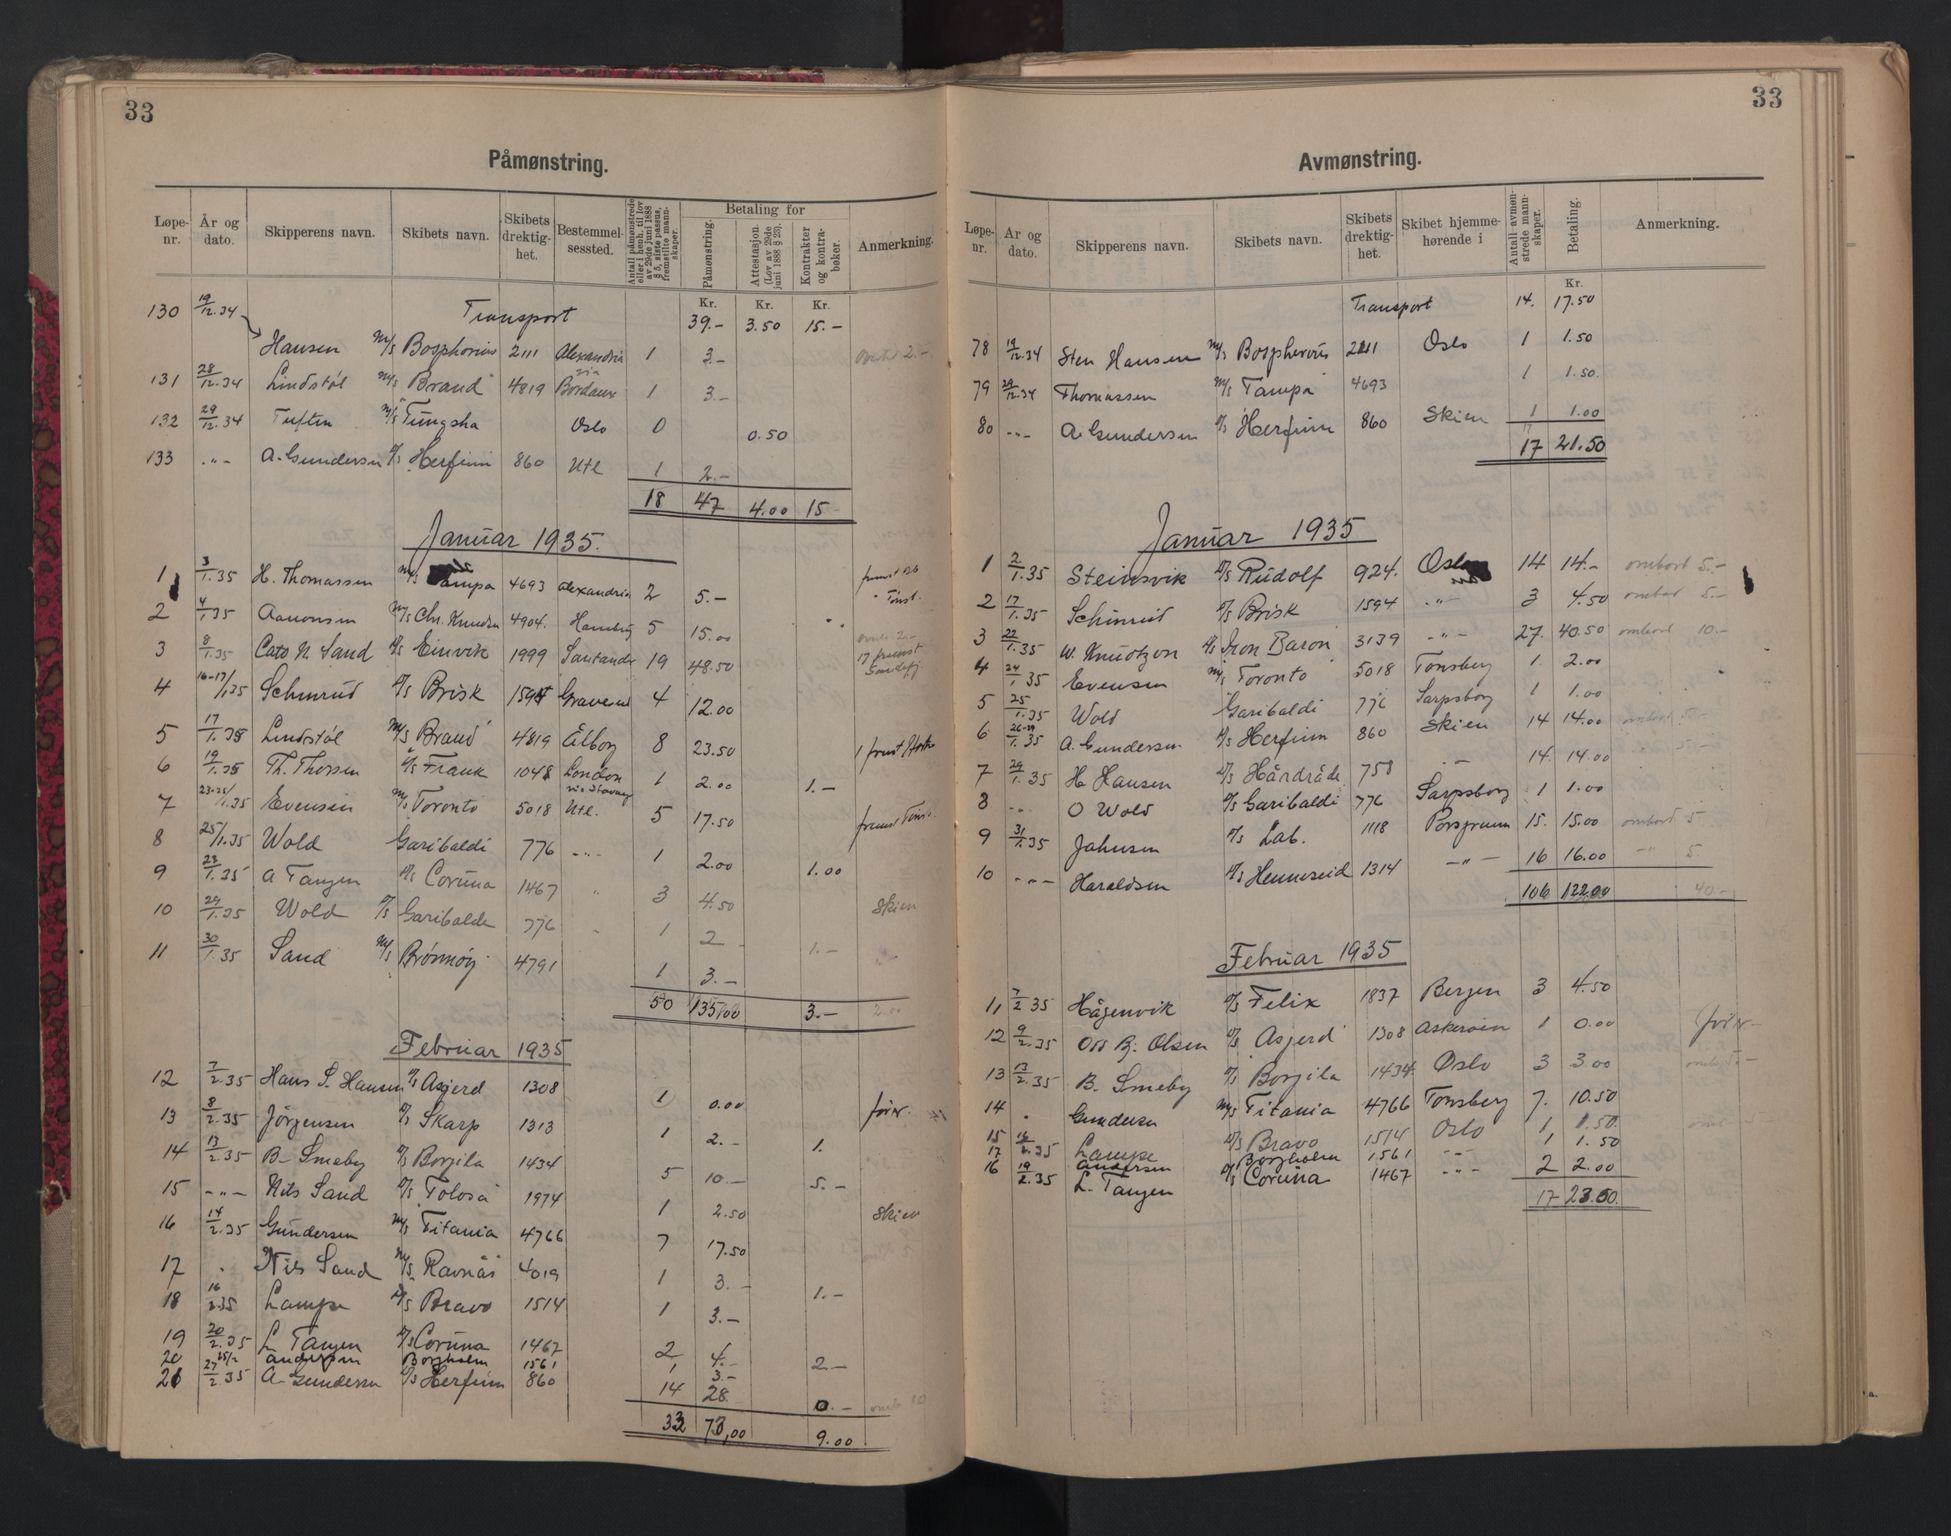 33
Påmønstring.
Løpe-nr. År og dato. Skipperens navn. Skibets navn. Skibets drektig-het. Bestemmel-sessted. Antall påmønstrede eller i henh. til lov av 29de juni 1888 § 5, siste passus, fremstilte mann-skaper. Betaling for Påmønstring. Attestasjon. (Lov av 29de juni 1888 § 23). Kontrakter og kontra-bøker. Anmerkning.
Kr. Kr. Kr.
130 19/12.34 Transport 39.- 3.50 15.-
Hansen M/S Bosphorus 2111 Alexandria 1 3.- 2.-
131 28/12.34 Lindstøl M/S Brand 4819 via Bordaux 1 3.-
132 29/12.34 Tuften M/S Tungsha Oslo 0 0.50
133 -"- A. Gundersen D/S Herfinn 860 Utl 1 2.-
18 47 4.00 15
Januar 1935.
1 3/1.35 H. Thomassen M/S Tampa 4693 Alexandria 2 5.- Tønsb.
2 4/1.35 Aanonsen M/S Chr. Knudsen 4904. Hamburg 5 15.00
3 8/1.35 Cato N. Sand D/S Einvik 1999 Santander 19 48.50 17 fremst Sandefj.
4 16-17/1.35 Schinrud D/S Brisk 1594 Gravesend 4 12.00
5 17/1.35 Lindstøl M/S Brand 4819 Ålborg 8 23.50 1 fremst
6 19/1.35 Th. Thorsen D/S Frank 1048 London via Stavang 1 2.00 1.-
7 23-25/1.35 Evensen M/S Toronto 5018 Utl. 5 17.50 fremst Tønsb.
8 25/1.35 Wold Garibaldi 776 -"- 1 2.00 1.00
9 23/1.35 A Tangen D/S Coruna 1467 " 3 4.50 Skien
10 29/1.35 Wold D/S Garibaldi 776 " 1 2 1.-
11 30/1.35 Sand M/S Brønnøy 4791 1 3.-
50 135,00 3.- 2.00
Februar 1935
12 7/2.35 Hans S. Hansen D/S Asgerd 1308 1 0.00 før.
13 8/2.35 Jörgensen D/S Skarp 1313 1 2.- 1.
14 13/2.35 B. Smeby D/S Borgila 1434 5 10.- 5.-
15 -"- Nils Sand D/S Tolosa 1974 1 2.50 Skien
16 14/2.35 Gundersen M/S Titania 4766 7 17.50
17 " Nils Sand M/S Ravnås 4019 1 3.- 1.-
18 16/2.35 Lampe D/S Bravo 1514 1 3.-
19 20/2.35 L Tangen D/S Coruna 1467 2 4.- 2.-
20 25/2 Andersen Borgholm 1561 1 3.-
21 27/2.35 A. Gundersen D/S Herfinn 860 14 28 0.-
33 73,00 9.00
33
Avmønstring.
Løpe-nr. År og dato. Skipperens navn. Skibets navn. Skibets drektig-het. Skibet hjemme-hørende i Antall avmøn-strede mann-skaper. Betaling. Anmerkning.
Kr.
Transport 14. 17.50
78 19/12.34 Sten Hansen M/S Bosphorus 2111 Oslo 1 1.50
79 29/12.34 Thomassen M/S Tampa 4693 1 1.50.
80 -"- A. Gundersen D/S Herfinn 860 Skien 1 1.00
17 21.50
Januar 1935
1 2/1.35 Steinsvik D/S Rudolf 924. Oslo 14 14.- ombord 5.-
2 17/1.35 Schinrud D/S Brisk 1594 -"- 3 4.50 ombord 5.-
3 22/1.35 W. Knudtzon D/S Iron Baron 3139 -"- 27. 40.50 ombord 10.-
4 24/1.35 Evensen M/S Toronto 5018 Tønsberg 1. 2.00
5 25/1.35 Wold Garibaldi 776 Sarpsborg 1 1.00
6 26-29/1.35 A. Gundersen D/S Herfinn 860 Skien 14 14.00 ombord 5.-
7 29/1.35 H Hansen D/S Hårdråde 758 -"- 14. 14.00 5.-
8 -"- O Wold D/S Garibaldi 776 Sarpsborg 1 1.00
9 31/1.35 Jahnsen D/S Lab. 1118 Porsgrunn 15. 15.00 ombord 5
10 -"- Haraldsen D/S Henneseid 1314 -"- 16 16.00 -"- 5.
106 122.00 40.-
Februar 1935
11 7/2.35 Hågenvik D/S Felix 1837 Bergen 3 4.50
12 9/2.35 B. Olsen D/S Asgerd 1308 Askerøien 1 0.00 før
13 13/2.35 B. Smeby D/S Borgila 1434 Oslo 3 3.00 omb 5.-
14 " Gundersen M/S Titania 4766 Tønsberg 7. 10.50
15 16/2.35 Lampe D/S Bravo 1514 Oslo 1 1.50
17 Andersen Borgholm 1561 -"- 1 1.50
16 19/2.35 L. Tangen D/S Coruna 1467 -"- 2 2.00
17 23.50